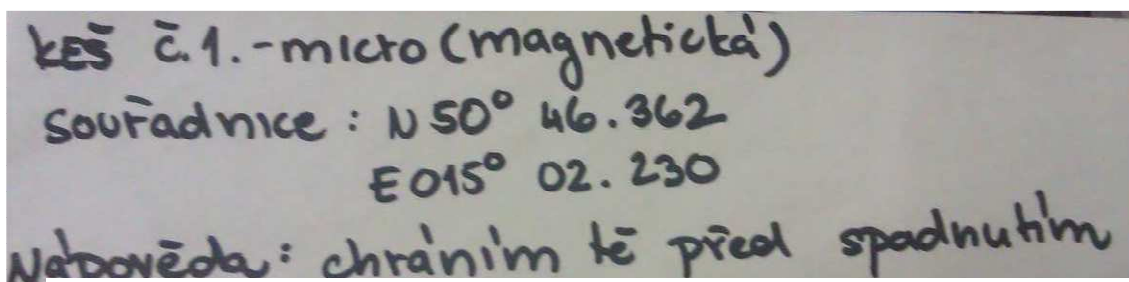 KEŠ č.1.-micro (magnetická)
souřadnice: N 50° 46.362
E 015° 02.230
Nápověda: chráním tě před spadnutím